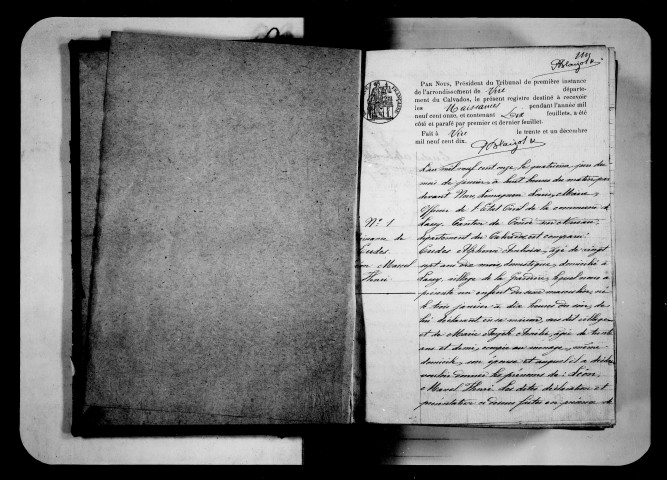 Par Nous, Président du Tribunal de première instance
de l'arrondissement de Vire départe-
ment du Calvados, le présent registre destiné à recevoir
les Naissances pendant l'année mil
neuf cent onze, et contenant feuillets, a été
côté et parafé par premier et dernier feuillet.
Fait à Vire le trente et un décembre
mil neuf cent dix.
L'an mil neuf cent onze le quatrième jour du
mois de janvier, à huit heures du matin, par
devant Nous, Louis, Maire
Officier de l'Etat Civil de la commune de
Canton de Condé
département du Calvados, est comparu:
Alphonse âgé de vingt
sept ans dix mois, domestique, domicilié à
village de la lequel nous a
présenté un enfant du sexe masculin, né
le trois janvier à dix heures du soir, de
lui déclarant en sa maison, sus dit village
et de Marie âgée de trente
ans et demi, occupée au ménage, même
domicile, son épouse et auquel il a déclaré
vouloir donner les prénoms de: Léon
Marcel Henri. Les dites déclaration et
présentation ci dessus faites en présence de
N° 1
de
Marcel
Henri